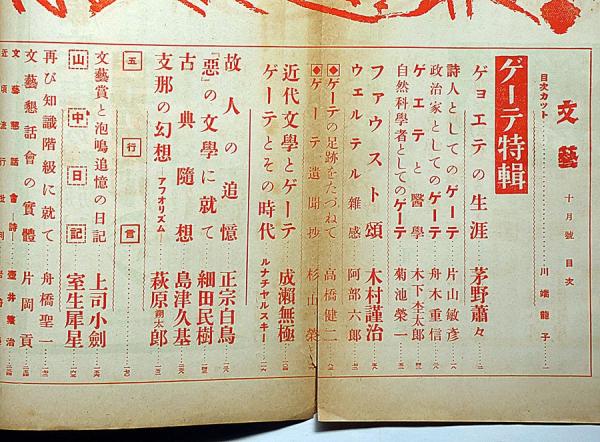 文藝 十月號 目次
目次カット……川端龍子…一
ゲーテ特輯
ゲョエテの生涯 茅野蕭々…二
詩人としてのゲーテ 片山敏彦
政治家としてのゲーテ 舟木重信
ゲエテと醫學 木下杢太郎
自然科學者としてのゲーテ 菊池榮一
ファウスト頌 木村謹治
ウェルテル雜感 阿部六郎
◆ゲーテの足跡をたづねて 高橋健二
◆ゲーテ遺聞抄 杉山榮
近代文學とゲーテ 成瀬無極
ゲーテとその時代 ルナチヤルスキー
故人の追憶 正宗白鳥
「惡」の文學に就て 細田民樹
古典隨想 島津久基
支那の幻想―アフオリズム― 萩原朔太郎
五行言
文藝賞と泡鳴追憶の日記 上司小劍
山中日記 室生犀星
再び知識階級に就て 舟橋聖一
文藝懇話會の實體 片岡貢
文藝懇話會―詩― 壺井繁治